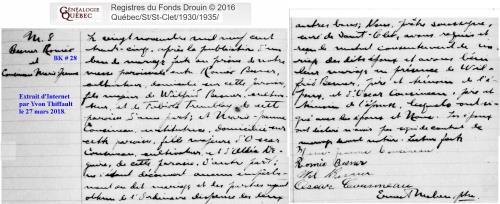 GÉNÉALOGIE
QUÉBEC
Registres du Fonds Drouin © 2016
Québec/St/St-Clet/1930/1935/
M. 8
Besner Roméo
et
Cousineau Marie Jeanne
BK # 28
Extrait d'Internet
par Yvon Thiffault
le 27 mars 2018.
Le vingt novembre mil neuf cent
trente-cinq, après la publication d'un
ban de mariage fait au prône de notre
messe paroissiale entre Roméo Besner,
cultivateur, domicilié sur cette paroisse,
fils majeur de Wilfrid Besner, cultiva-
teur, et de Tremblay de cette
paroisse d'une part; et Marie-Jeanne
Cousineau, institutrice, domiciliée sur
cette paroisse, fille majeure d'Oscar
Cousineau, cultivateur, et d'
de cette paroisse, d'autre part;
ne s'étant découvert aucun empêche-
ment au dit mariage et les parties ayant
obtenu de l'Ordinaire dispense des deux
autres bans; Nous, prêtre soussigné,
curé de Saint-Clet, avons requis et
reçu le mutuel consentement de ma-
riage des dites époux et avons béni
leur mariage en présence de Wil-
frid Besner, père et témoin de l'é-
poux, et d'Oscar Cousineau, père et
témoin de l'épouse, lesquels ont si-
gné avec les époux et Nous. Les époux
ont déclaré n'avoir pas de contrat de
mariage avant notaire. Lecture faite
Marie Jeanne Cousineau
Roméo Besner
Wd Besner
Oscar Cousineau
ptre